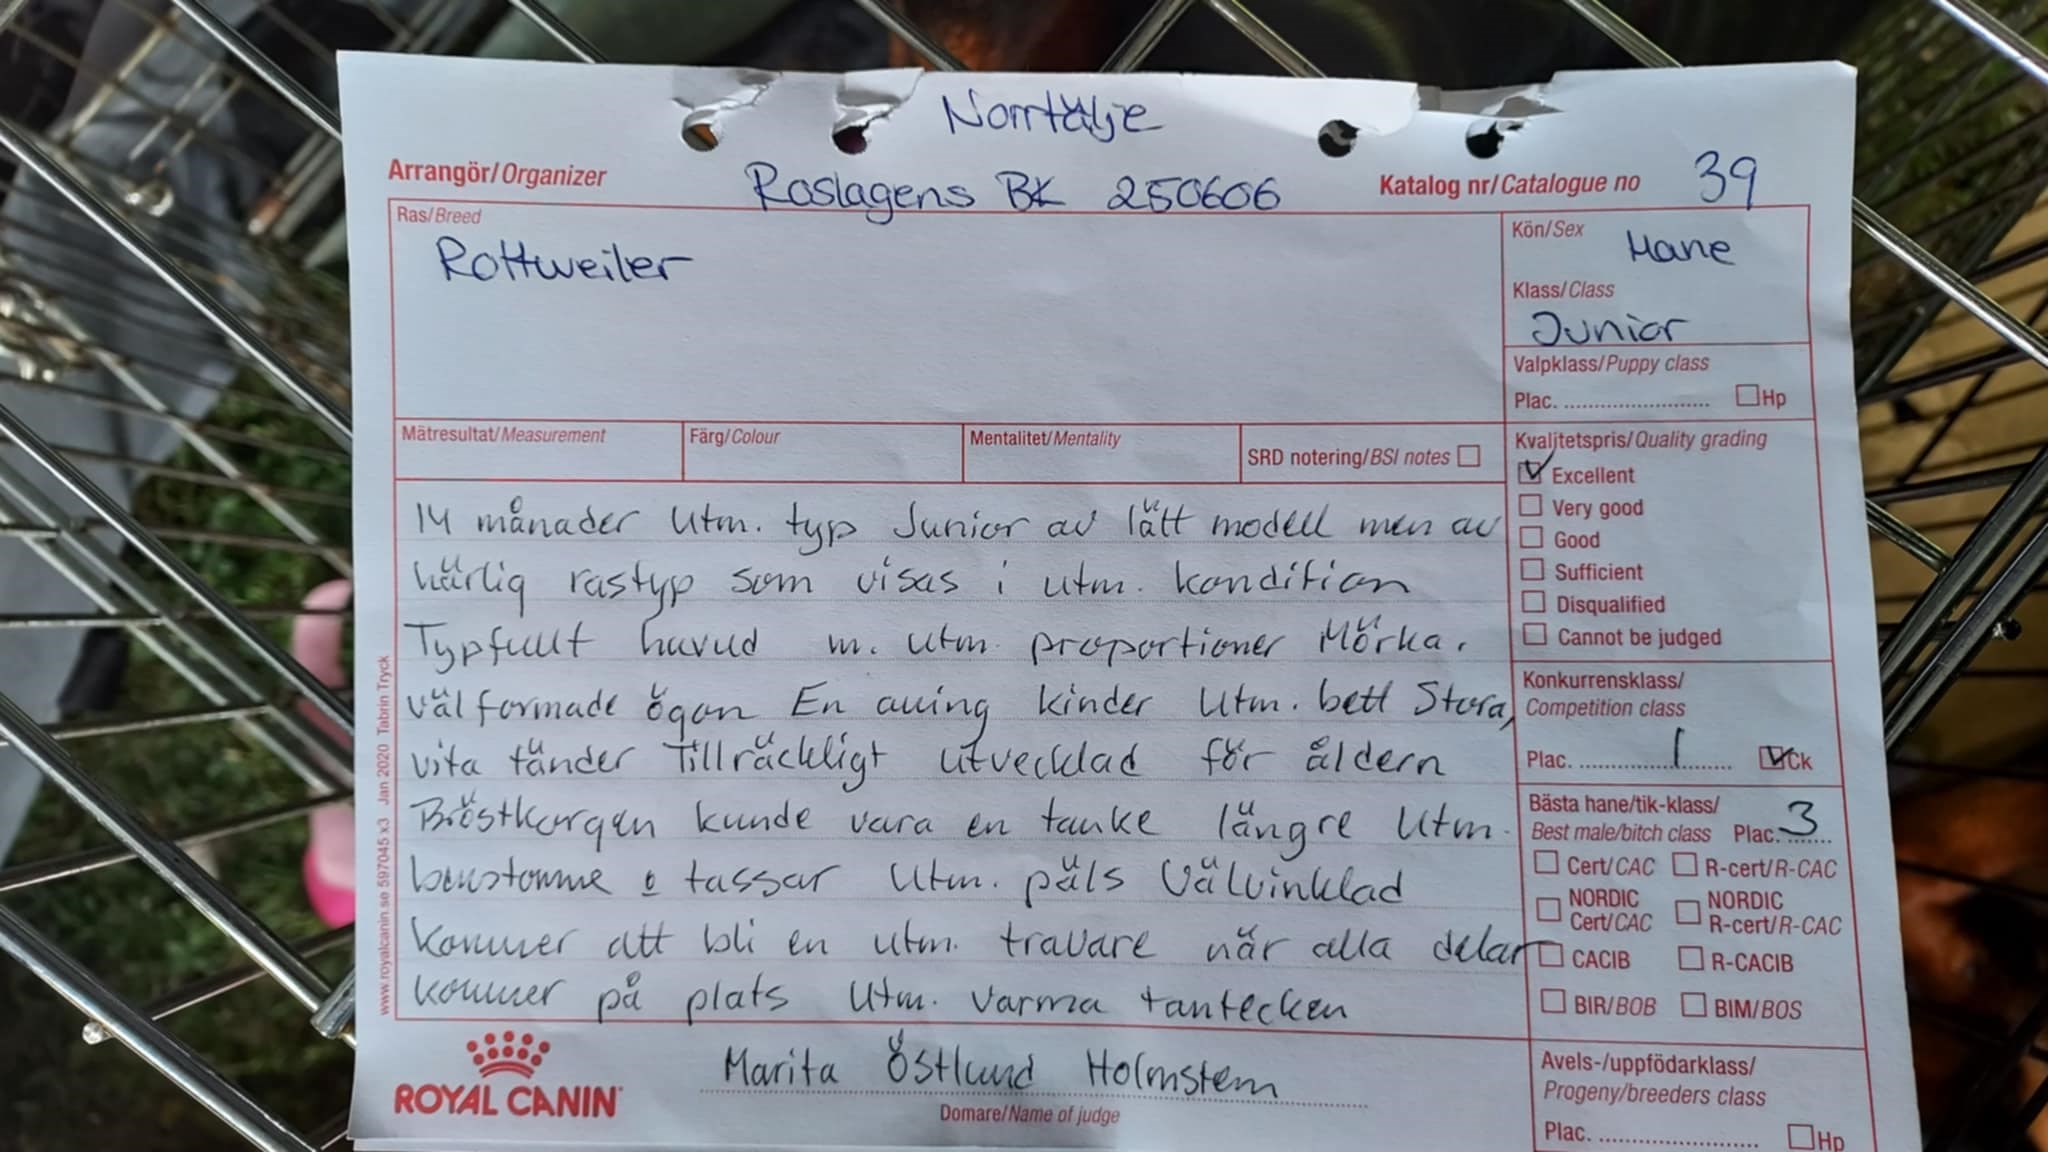 Norrtälje
Arrangör/Organizer Roslagens BK 250606 Katalog nr/Catalogue no 39
Ras/Breed
Rottweiler
Kön/Sex Hane
Klass/Class
Junior
Valpklass/Puppy class
Plac. ☐ Hp
Mätresultat/Measurement Färg/Colour Mentalitet/Mentality SRD notering/BSI notes ☐
Kvalitetspris/Quality grading
☑ Excellent
☐ Very good
☐ Good
☐ Sufficient
☐ Disqualified
☐ Cannot be judged
14 månader Utm. typ Junior av lätt modell men av
härlig rastyp som visas i utm. kondition
Typfullt huvud m. utm. proportioner Mörka,
välformade ögon En aning kinder Utm. bett Stora,
vita tänder Tillräckligt utvecklad för åldern
Bröstkorgen kunde vara en tanke längre Utm.
benstomme o tassar Utm. päls Välvinklad
Kommer att bli en utm. travare när alla delar
kommer på plats Utm. varma tantecken
Konkurrensklass/
Competition class
Plac. 1 ☑ Ck
Bästa hane/tik-klass/
Best male/bitch class Plac. 3
☐ Cert/CAC ☐ R-cert/R-CAC
☐ NORDIC Cert/CAC ☐ NORDIC R-cert/R-CAC
☐ CACIB ☐ R-CACIB
☐ BIR/BOB ☐ BIM/BOS
Avels-/uppfödarklass/
Progeny/breeders class
Plac. ☐ Hp
ROYAL CANIN
Marita Östlund Holmstem
Domare/Name of judge
www.royalcanin.se 597045 x3 Jan 2020 Tabrin Tryck